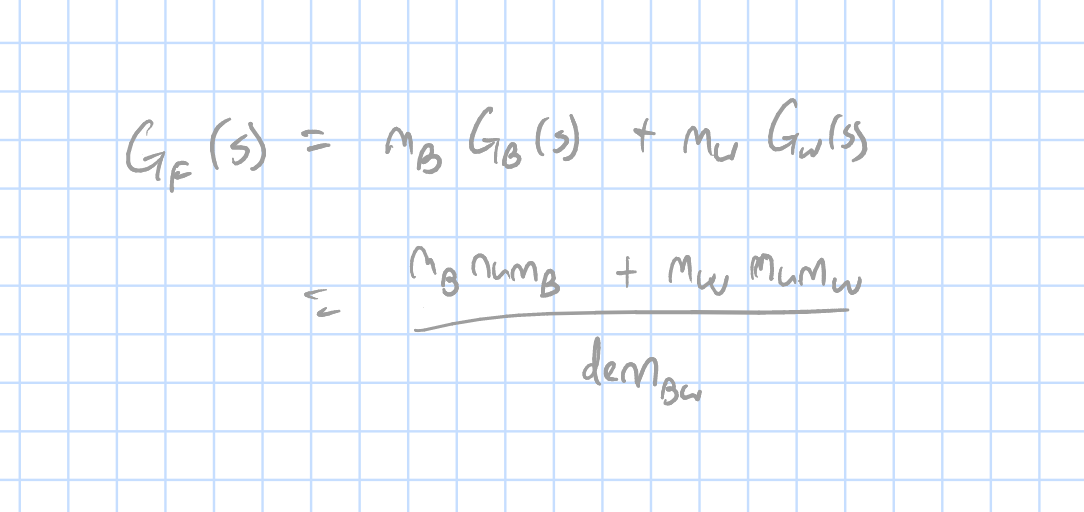 G_F(s) = m_B G_B(s) + m_w G_w(s)
= (m_B num_B + m_w num_w) / den_Bw